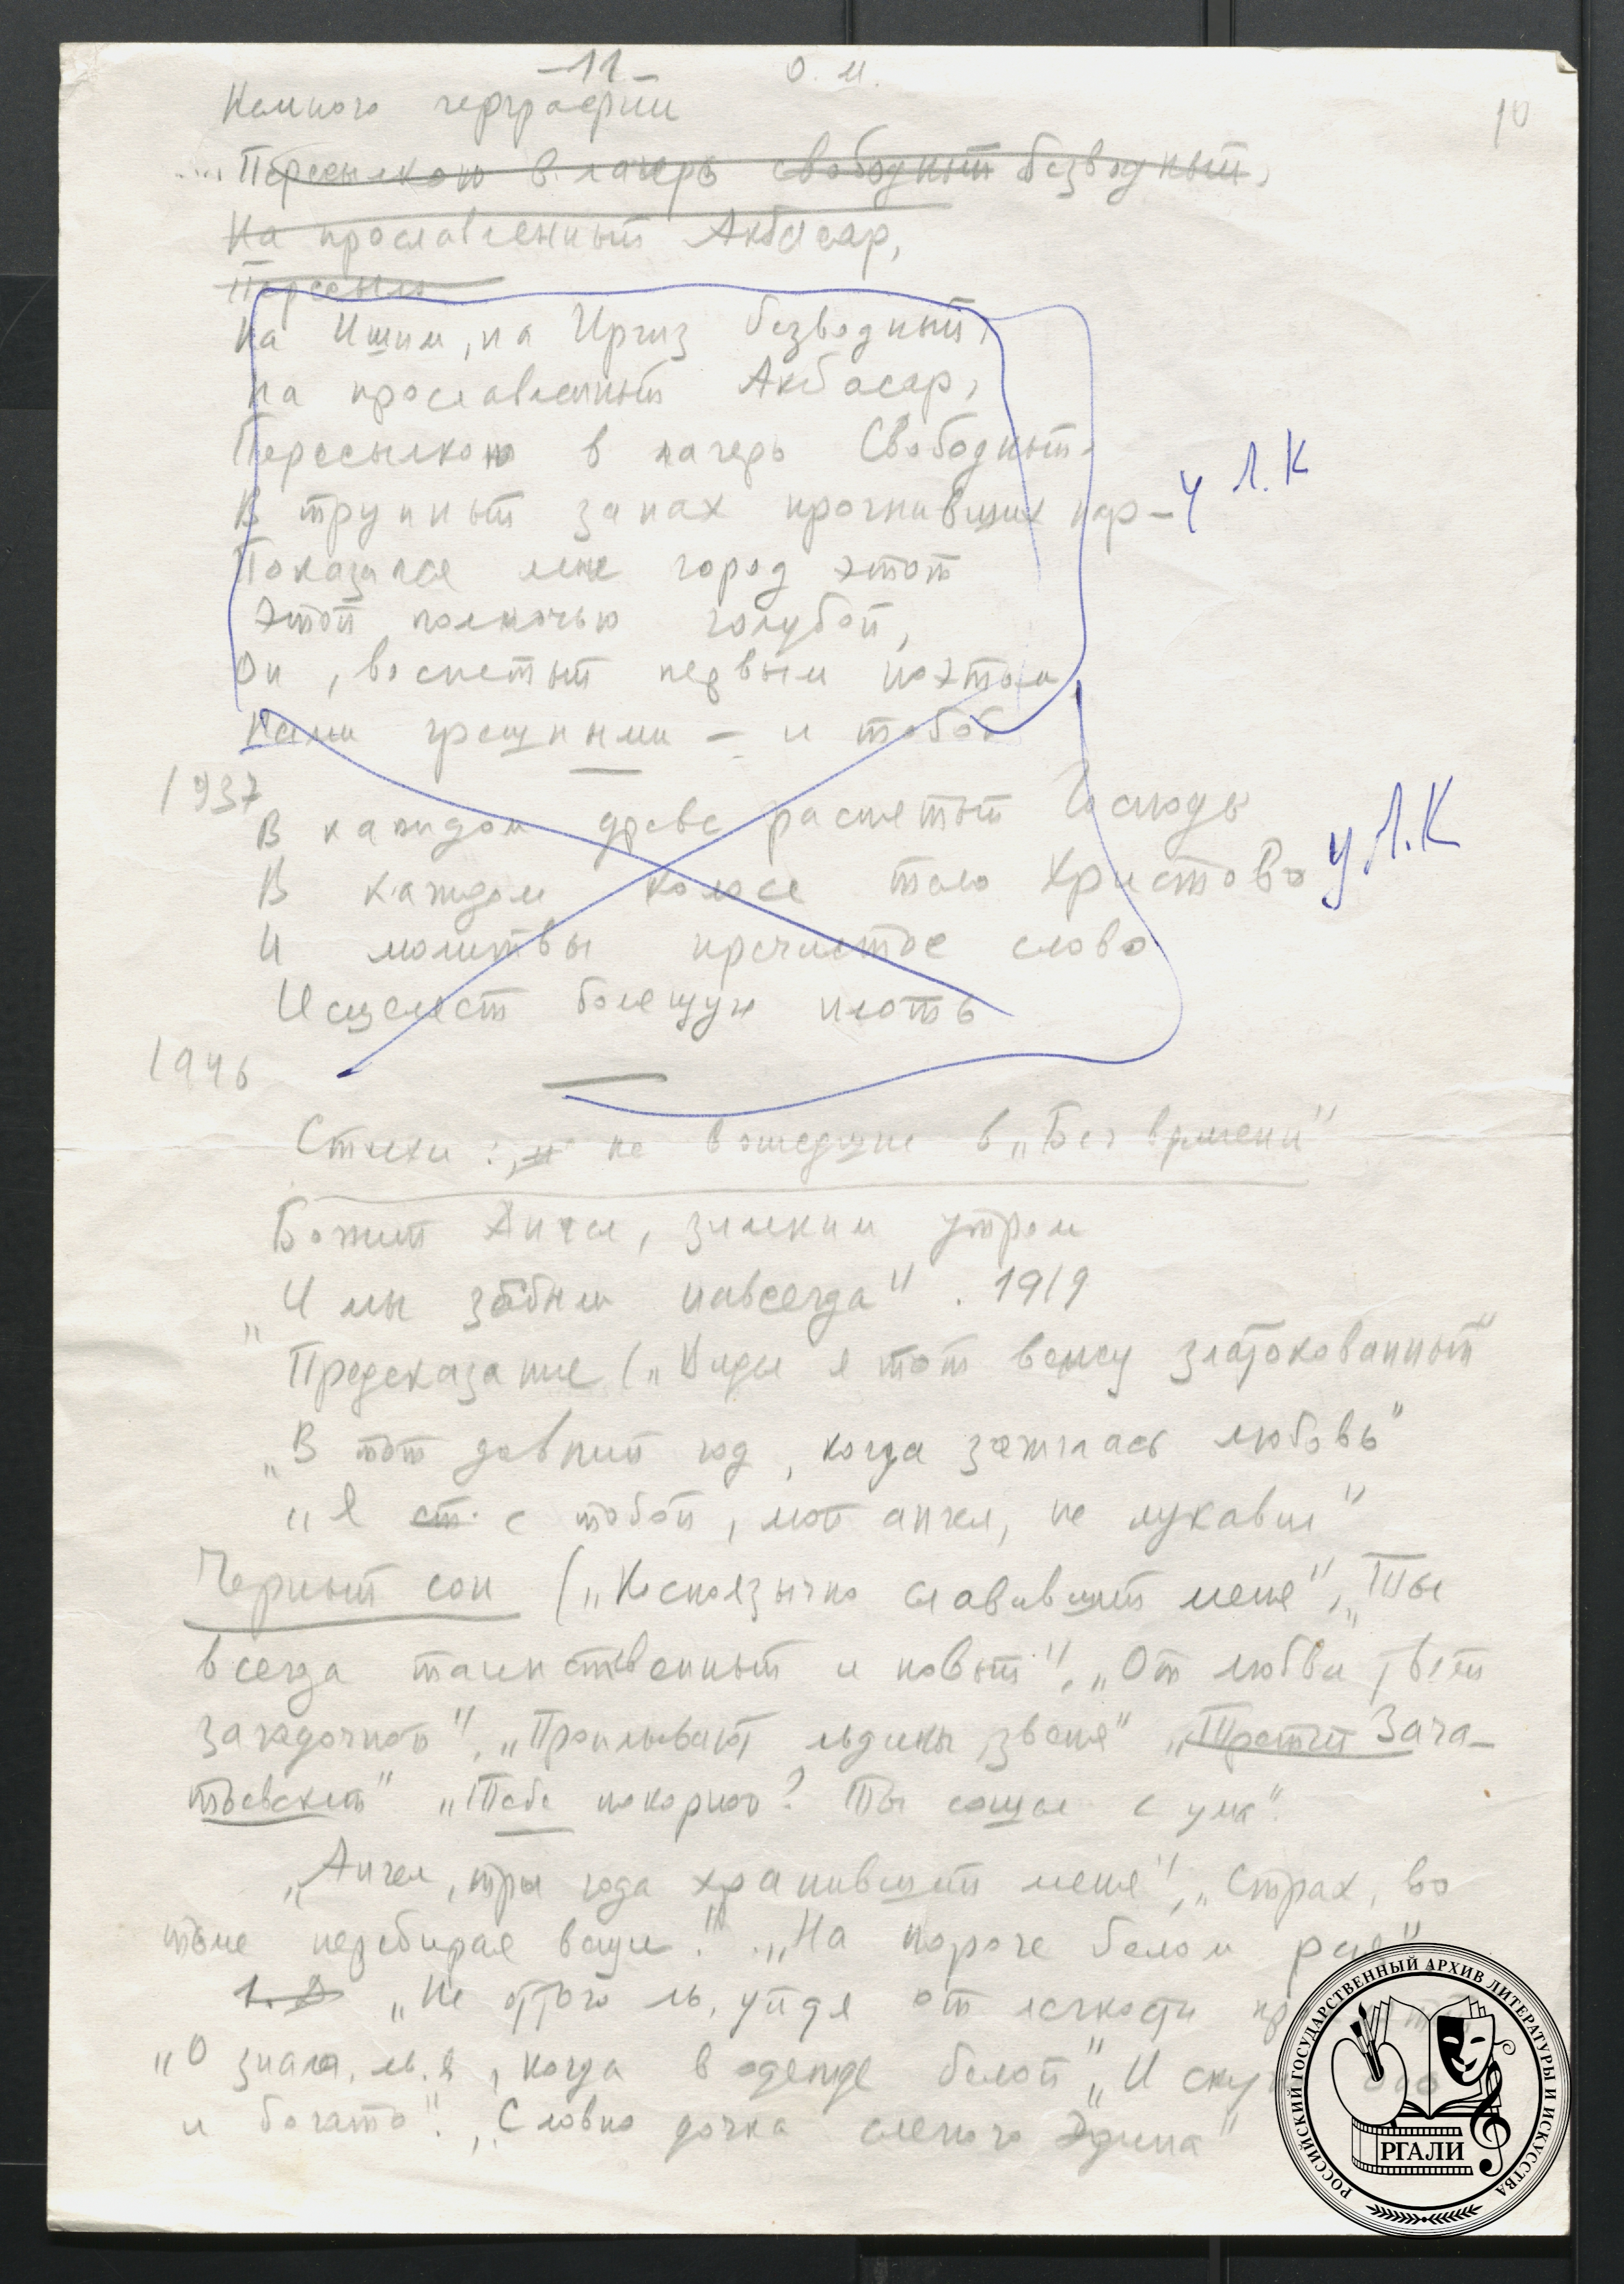 -11-
О. М.
10
Немного географии
.... Пересылкою в лагерь свободный безводный,
На прославленный Акбасар,
Пересыл
На Ишим, на Иргиз безводный,
На прославленный Акбасар,
Пересылкою в лагерь Свободный.
В трупный запах прогнивших нар –
у Л.К
Показался мне город этот
Этой полночью голубой,
Он, воспетый первым поэтом,
Нами грешными – и тобой
1937
В каждом древе распятый Господь
В каждом колосе тело Христово
у Л.К
И молитвы пречистое слово
Исцеляет болящую плоть
1946
Стихи: не вошедшие в „Бег времени"
Божий Ангел, зимним утром
„И мы забыли навсегда". 1919
Предсказание („Видел я тот венец златокованный"
„В тот давний год, когда зажглась любовь"
„Я ст. с тобой, мой ангел, не лукавил"
Черный сон („Косноязычно славивший меня", „Ты
всегда таинственный и новый", „От любви твоей
загадочной", „Проплывают льдины, звеня" „Третий Зача-
тьевский" „Тебе покорной? Ты сошел с ума".
„Ангел, три года хранивший меня", „Страх, во
тьме перебирая вещи". „На пороге белом рая"
„Не оттого ль, уйдя от легкости
„О знала ль я, когда в одежде белой" „И
и богато". „Словно дочка слепого Эдипа"
РОССИЙСКИЙ ГОСУДАРСТВЕННЫЙ АРХИВ ЛИТЕРАТУРЫ И ИСКУССТВА
РГАЛИ